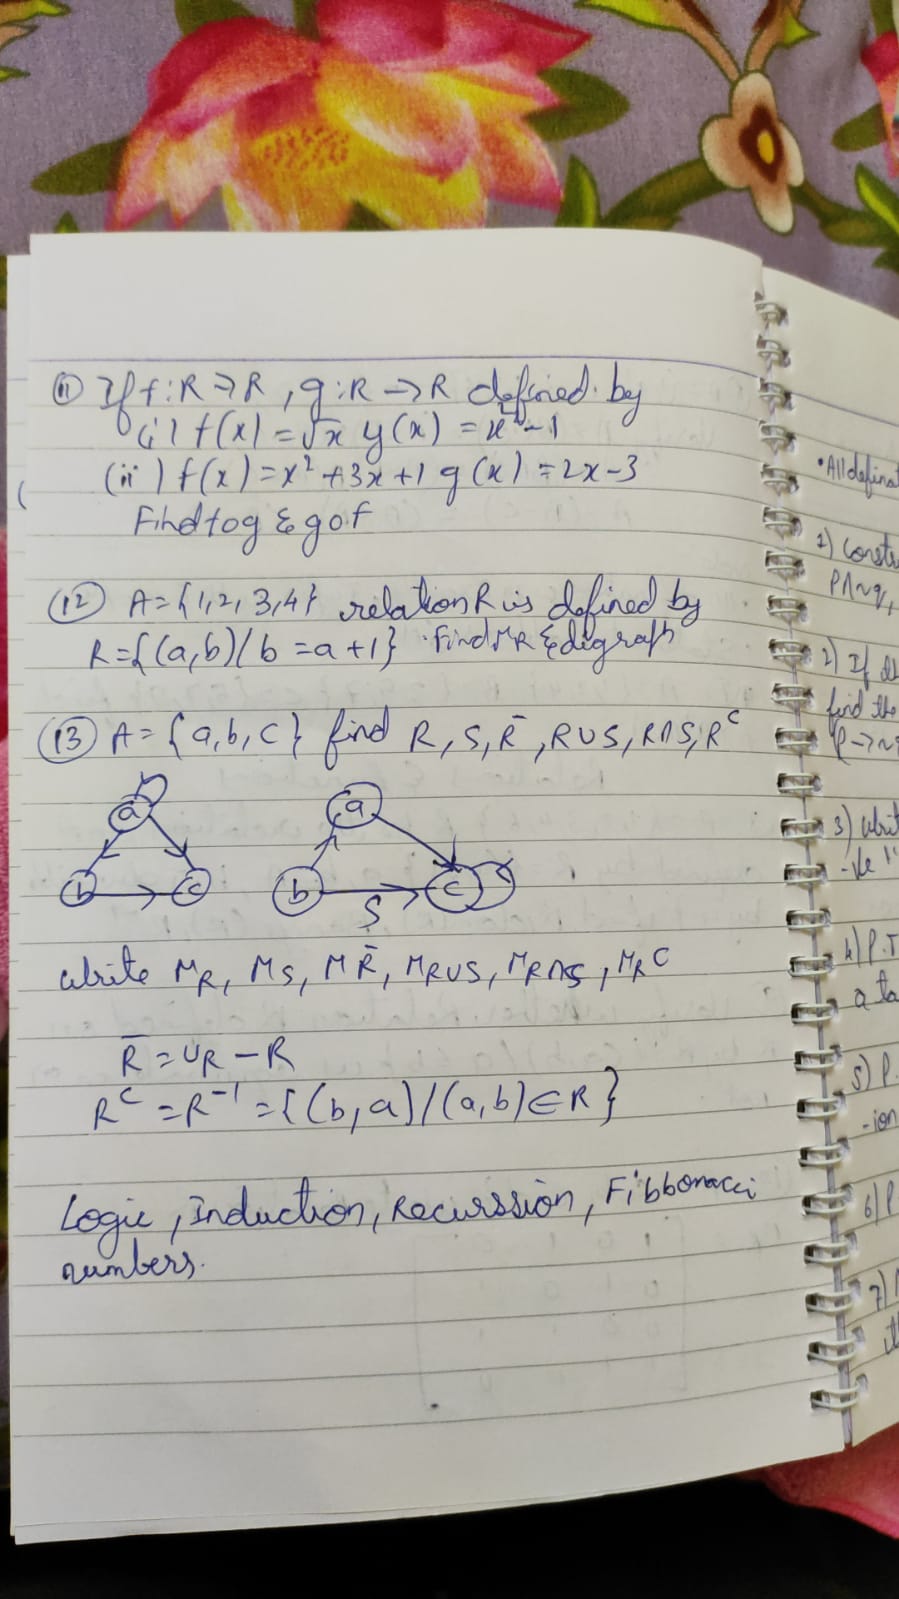 (11) If f:R→R, g:R→R defined by
(i) f(x)=√x g(x) = x²-1
(ii) f(x)=x²+3x+1 g(x)=2x-3
Find fog & gof
(12) A={1,2,3,4} relation R is defined by
R={(a,b)/b=a+1} . Find MR & digraph
(13) A={a,b,c} find R, S, R̄, RUS, R∩S, Rᶜ
a
a
b
c
b
S
c
Write MR, MS, MR̄, MRUS, MR∩S, MRᶜ
R̄ = UR - R
Rᶜ = R⁻¹ = {(b,a)/(a,b)∈R}
Logic, Induction, Recurssion, Fibbonacci
numbers.
1)
P∧~q,
2) If
find the
3)
-ve
4) P.T
a
5) P.
-ion
6) P
7)